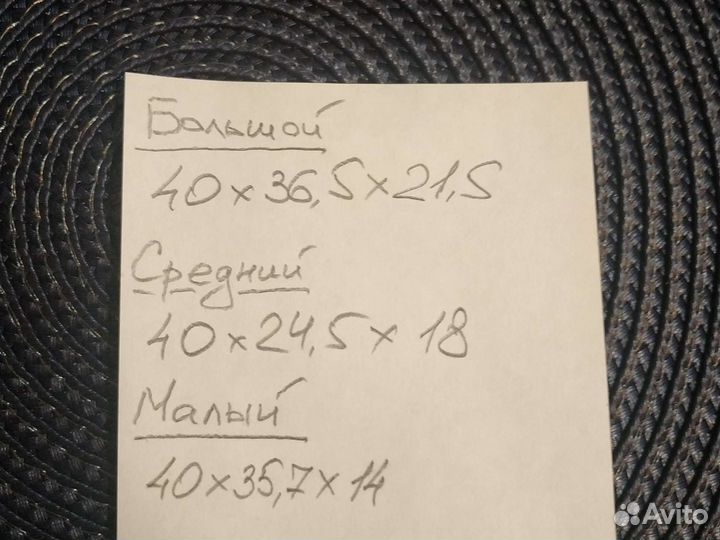 Большой
40x36,5x21,5
Средний
40x24,5x18
Малый
40x35,7x14
Avito